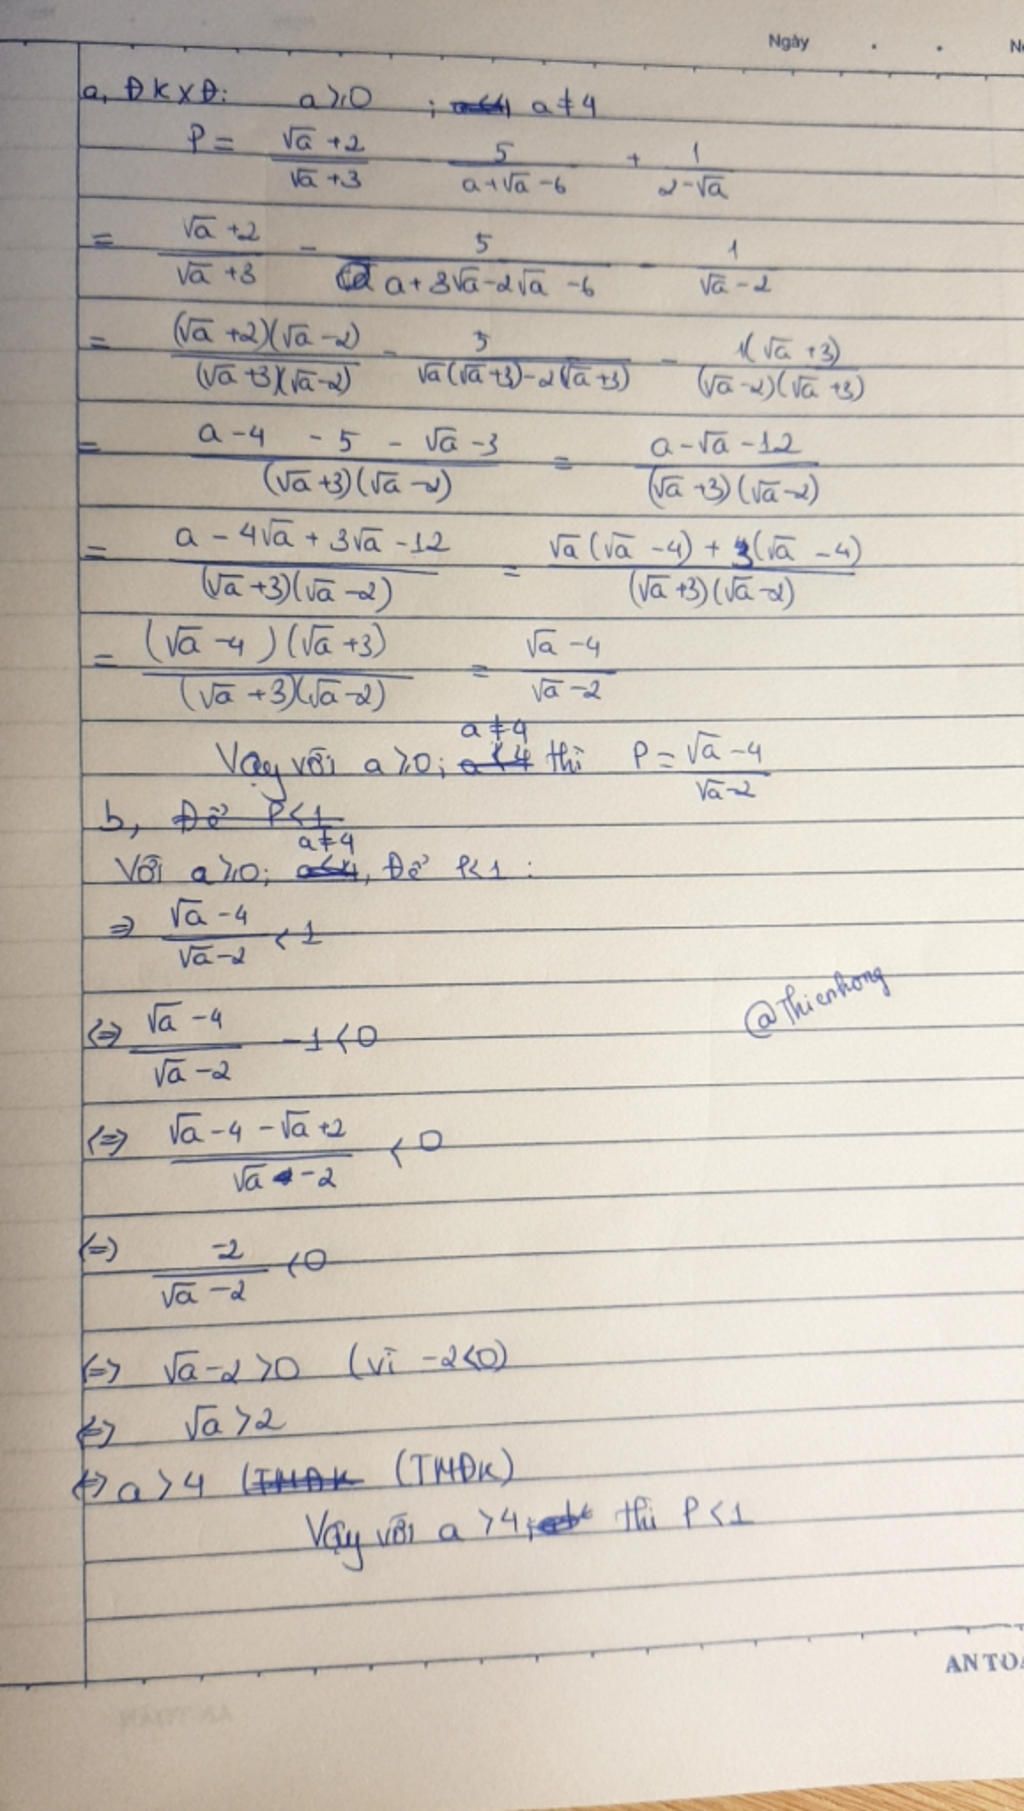 Ngày
a, ĐKXĐ: a ≥ 0 ; a ≠ 4
P = (√a + 2)/(√a + 3) - 5/(a + √a - 6) + 1/(2 - √a)
= (√a + 2)/(√a + 3) - 5/(a + 3√a - 2√a - 6) - 1/(√a - 2)
= (√a + 2)(√a - 2)/(√a + 3)(√a - 2) - 5/(√a(√a + 3) - 2(√a + 3)) - 1(√a + 3)/(√a - 2)(√a + 3)
= (a - 4 - 5 - √a - 3)/(√a + 3)(√a - 2) = (a - √a - 12)/(√a + 3)(√a - 2)
= (a - 4√a + 3√a - 12)/(√a + 3)(√a - 2) = (√a(√a - 4) + 3(√a - 4))/(√a + 3)(√a - 2)
= (√a - 4)(√a + 3)/(√a + 3)(√a - 2) = (√a - 4)/(√a - 2)
Vậy với a ≥ 0; a ≠ 4 thì P = (√a - 4)/(√a - 2)
b, Để P < 1
Với a ≥ 0; a ≠ 4, Để P < 1 :
⇒ (√a - 4)/(√a - 2) < 1
⇔ (√a - 4)/(√a - 2) - 1 < 0
@Thienhong
⇔ (√a - 4 - √a + 2)/(√a - 2) < 0
⇔ -2/(√a - 2) < 0
⇔ √a - 2 > 0 (vì -2 < 0)
⇔ √a > 2
⇔ a > 4 (TMĐK)
Vậy với a > 4 thì P < 1